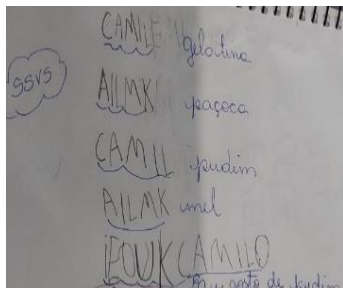 CAMILE gelatina
SSVS
AILMK paçoca
CAMIL pudim
AILMK mel
IEOUK CAMILO
gosto de pudim